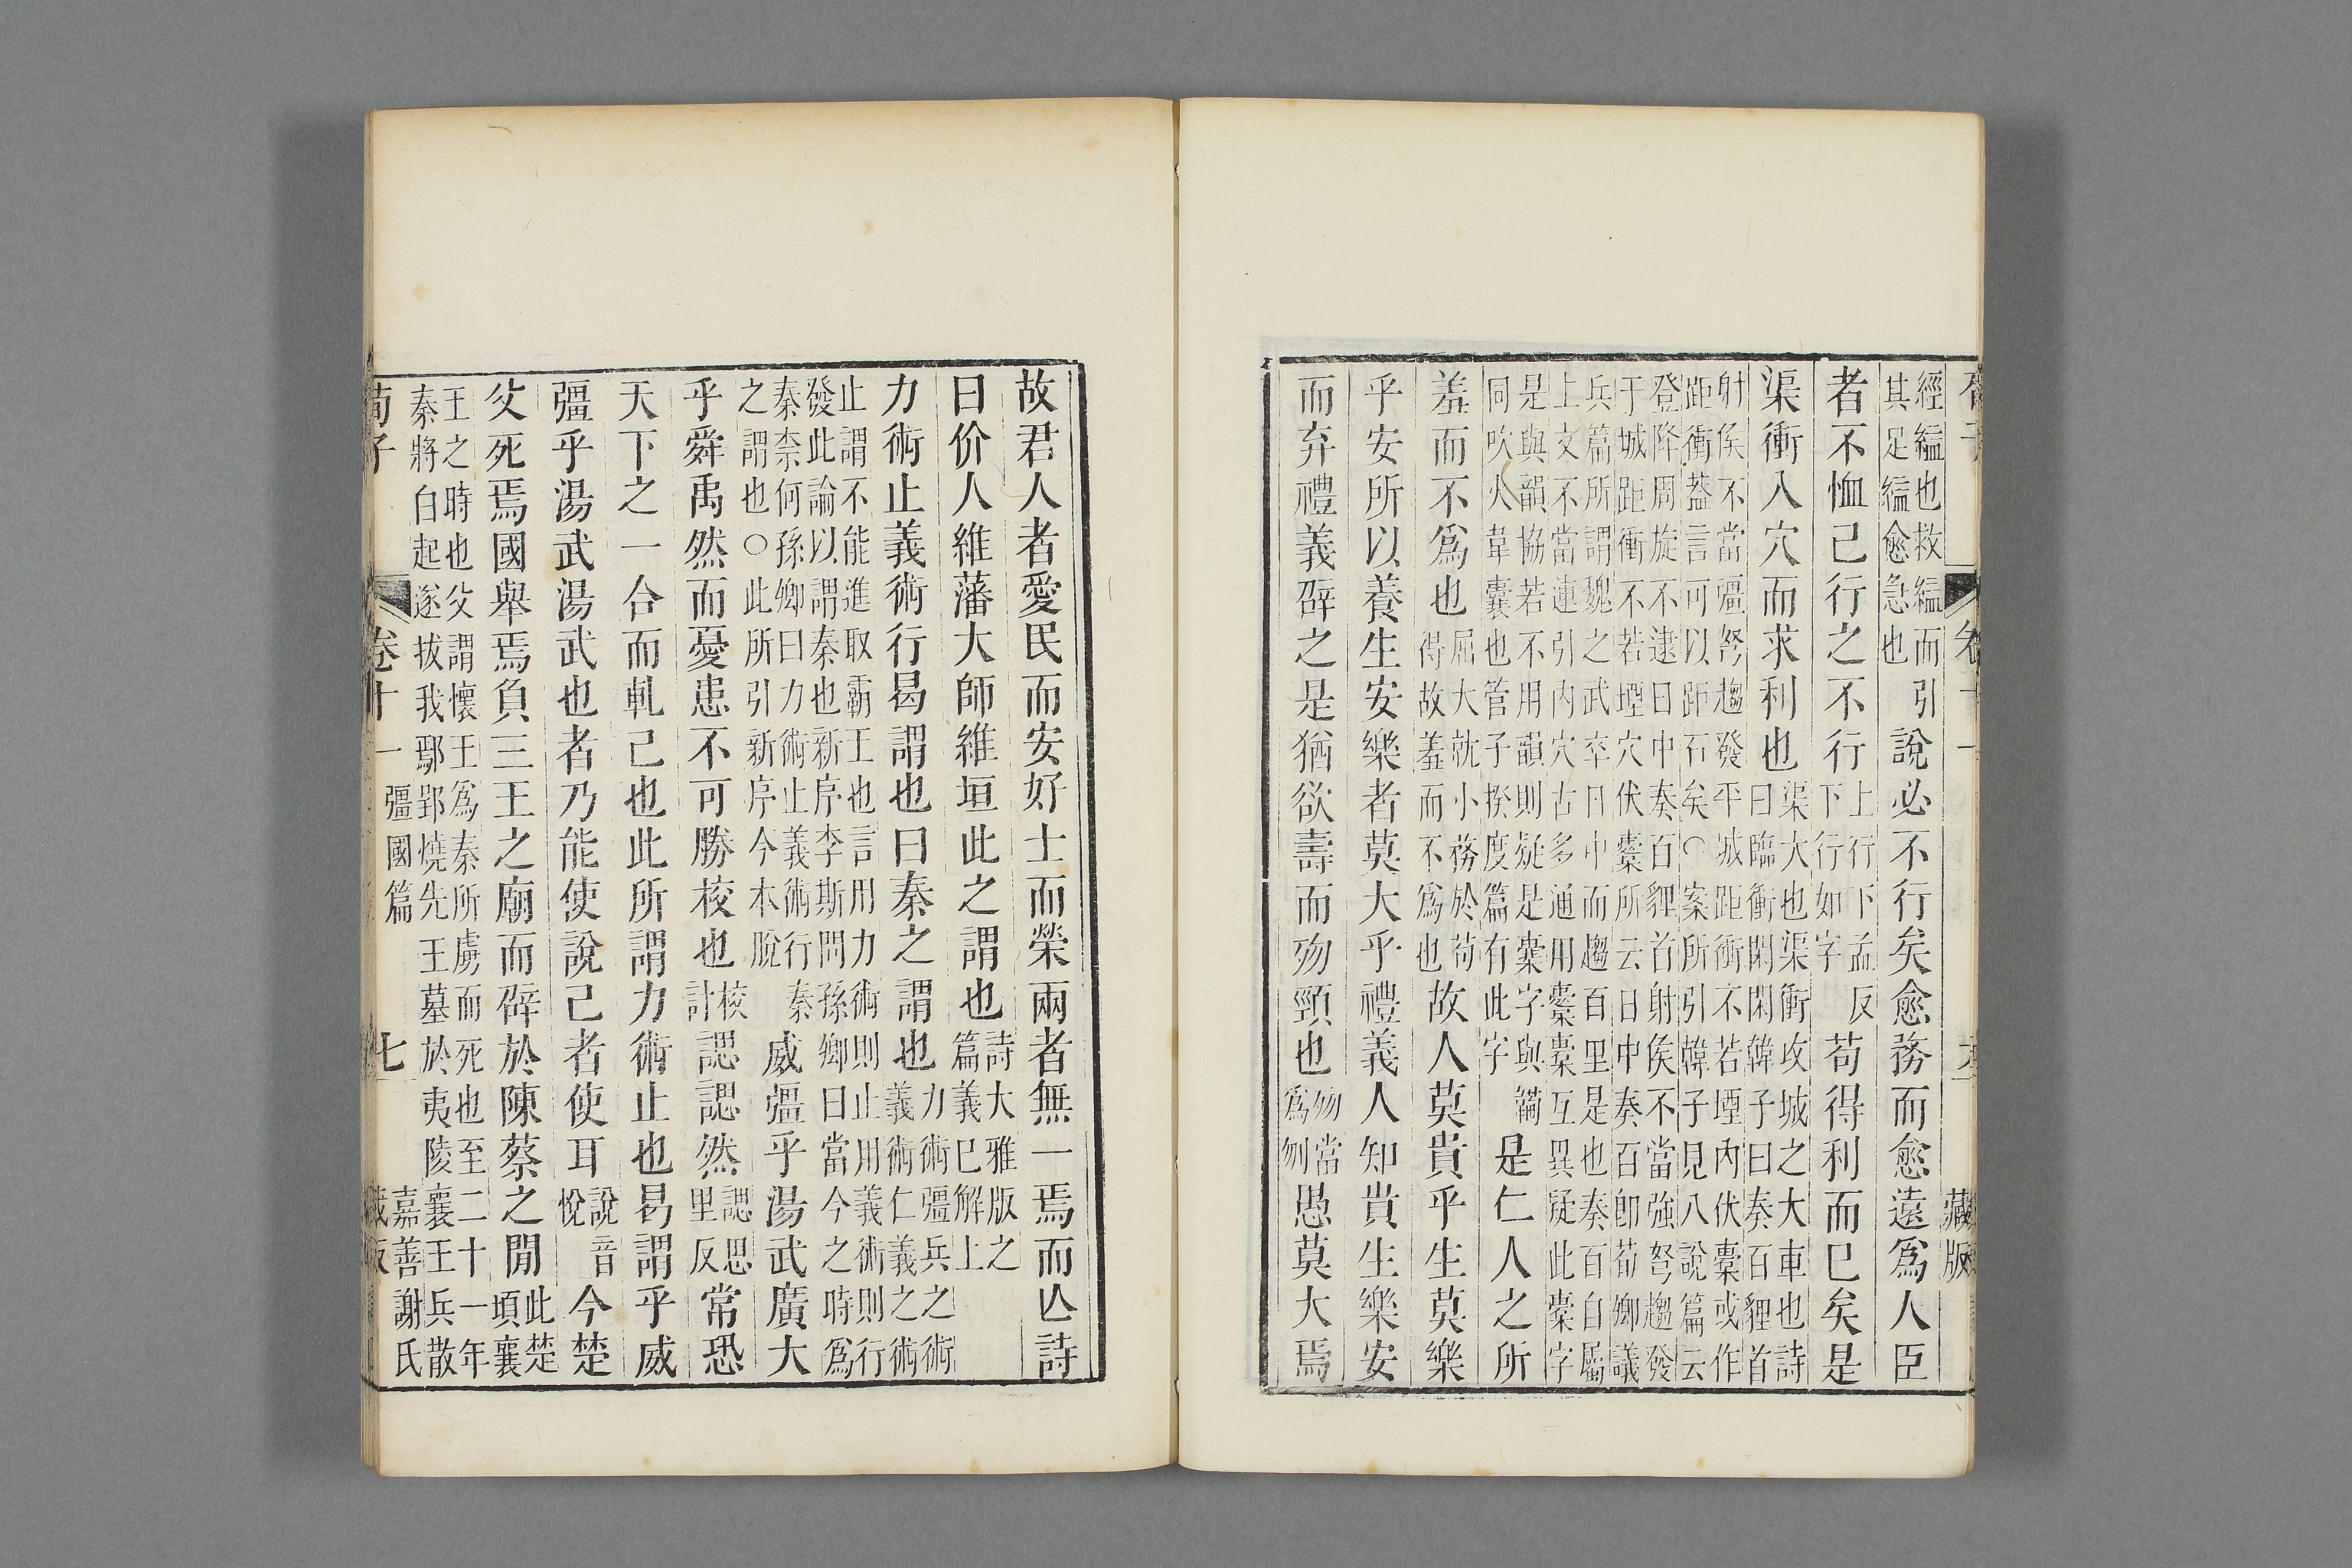 經縊也救縊而引其足縊愈急也說必不行矣愈務而愈遠爲人臣
者不恤己行之不行上行下孟反下行如字苟得利而已矣是
渠衝入穴而求利也渠大也渠衝攻城之大車也詩曰臨衝閑閑韓子曰奏百貍首
射侯不當彊弩趨發平城距衝不若堙內伏櫜或作距衝蓋言可以距石矣○案所引韓子見八說篇云
登降周旋不逮日中奏百貍首射侯不當強弩趨發于城距衝不若堙穴伏櫜所云日中奏百卽荀卿議
兵篇所謂魏之武卒日中而趨百里是也奏百自屬上文不當連引內穴古多通用櫜橐互異疑此櫜字
是與韻協若不用韻則疑是橐字與韛同吹火韋囊也管子揆度篇有此字是仁人之所
羞而不爲也屈大就小務於苟得故羞而不爲也故人莫貴乎生莫樂
乎安所以養生安樂者莫大乎禮義人知貴生樂安
而弃禮義辟之是猶欲壽而歾頸也歾當爲刎愚莫大焉
藏版
故君人者愛民而安好士而榮兩者無一焉而亾詩
曰价人維藩大師維垣此之謂也詩大雅版之篇義已解上
力術止義術行曷謂也曰秦之謂也力術彊兵之術義術仁義之術
止謂不能進取霸王也言用力術則止用義術則行發此論以謂秦也新序李斯問孫卿曰當今之時爲
秦柰何孫卿曰力術止義術行秦之謂也○此所引新序今本脫威彊乎湯武廣大
乎舜禹然而憂患不可勝校也校計諰諰然諰思里反常恐
天下之一合而軋己也此所謂力術止也曷謂乎威
彊乎湯武湯武也者乃能使說己者使耳說音悅今楚
父死焉國舉焉負三王之廟而辟於陳蔡之閒此楚頃襄
王之時也父謂懷王爲秦所虜而死也至二十一年秦將白起遂拔我鄢郢燒先王墓於夷陵襄王兵散
荀子 卷十一 彊國篇 七 嘉善謝氏藏版